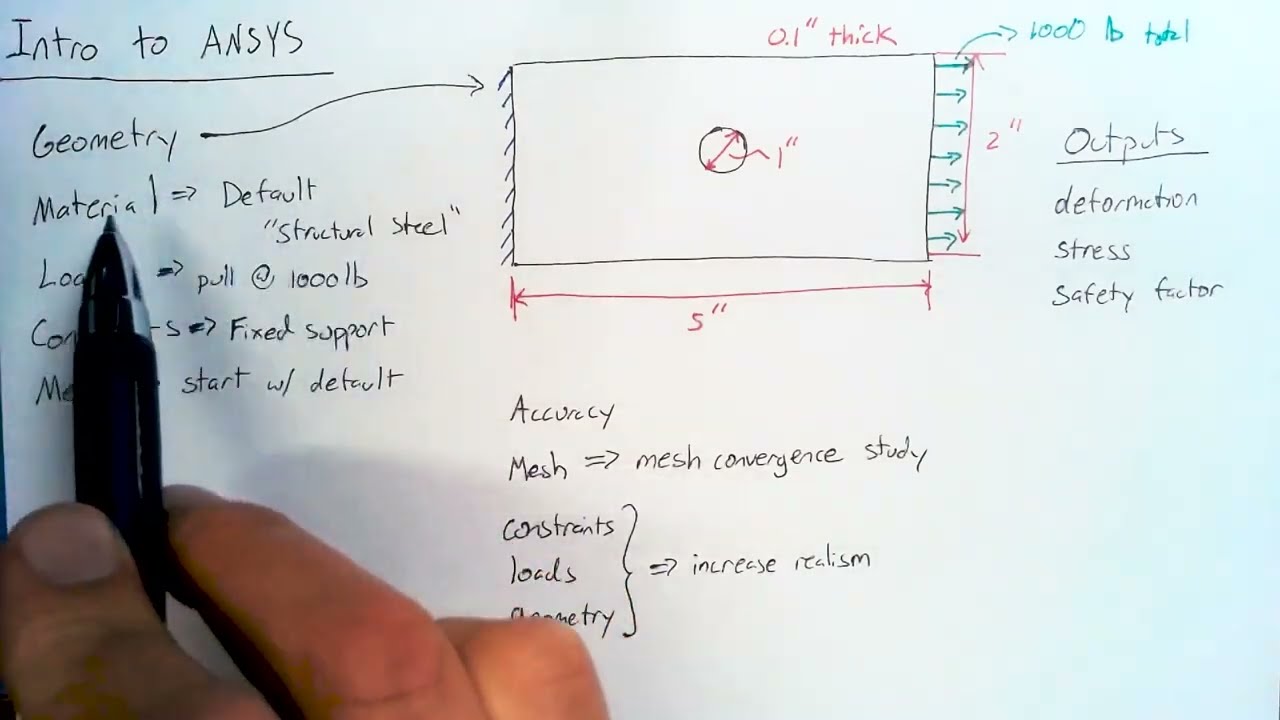 Intro to ANSYS
Geometry
Material => Default
"Structural Steel"
=> pull @ 1000 lb
=> Fixed support
start w/ default
0.1" thick
1000 lb total
1"
2"
5"
Outputs
deformation
stress
safety factor
Accuracy
Mesh => mesh convergence study
constraints
loads
geometry
=> increase realism